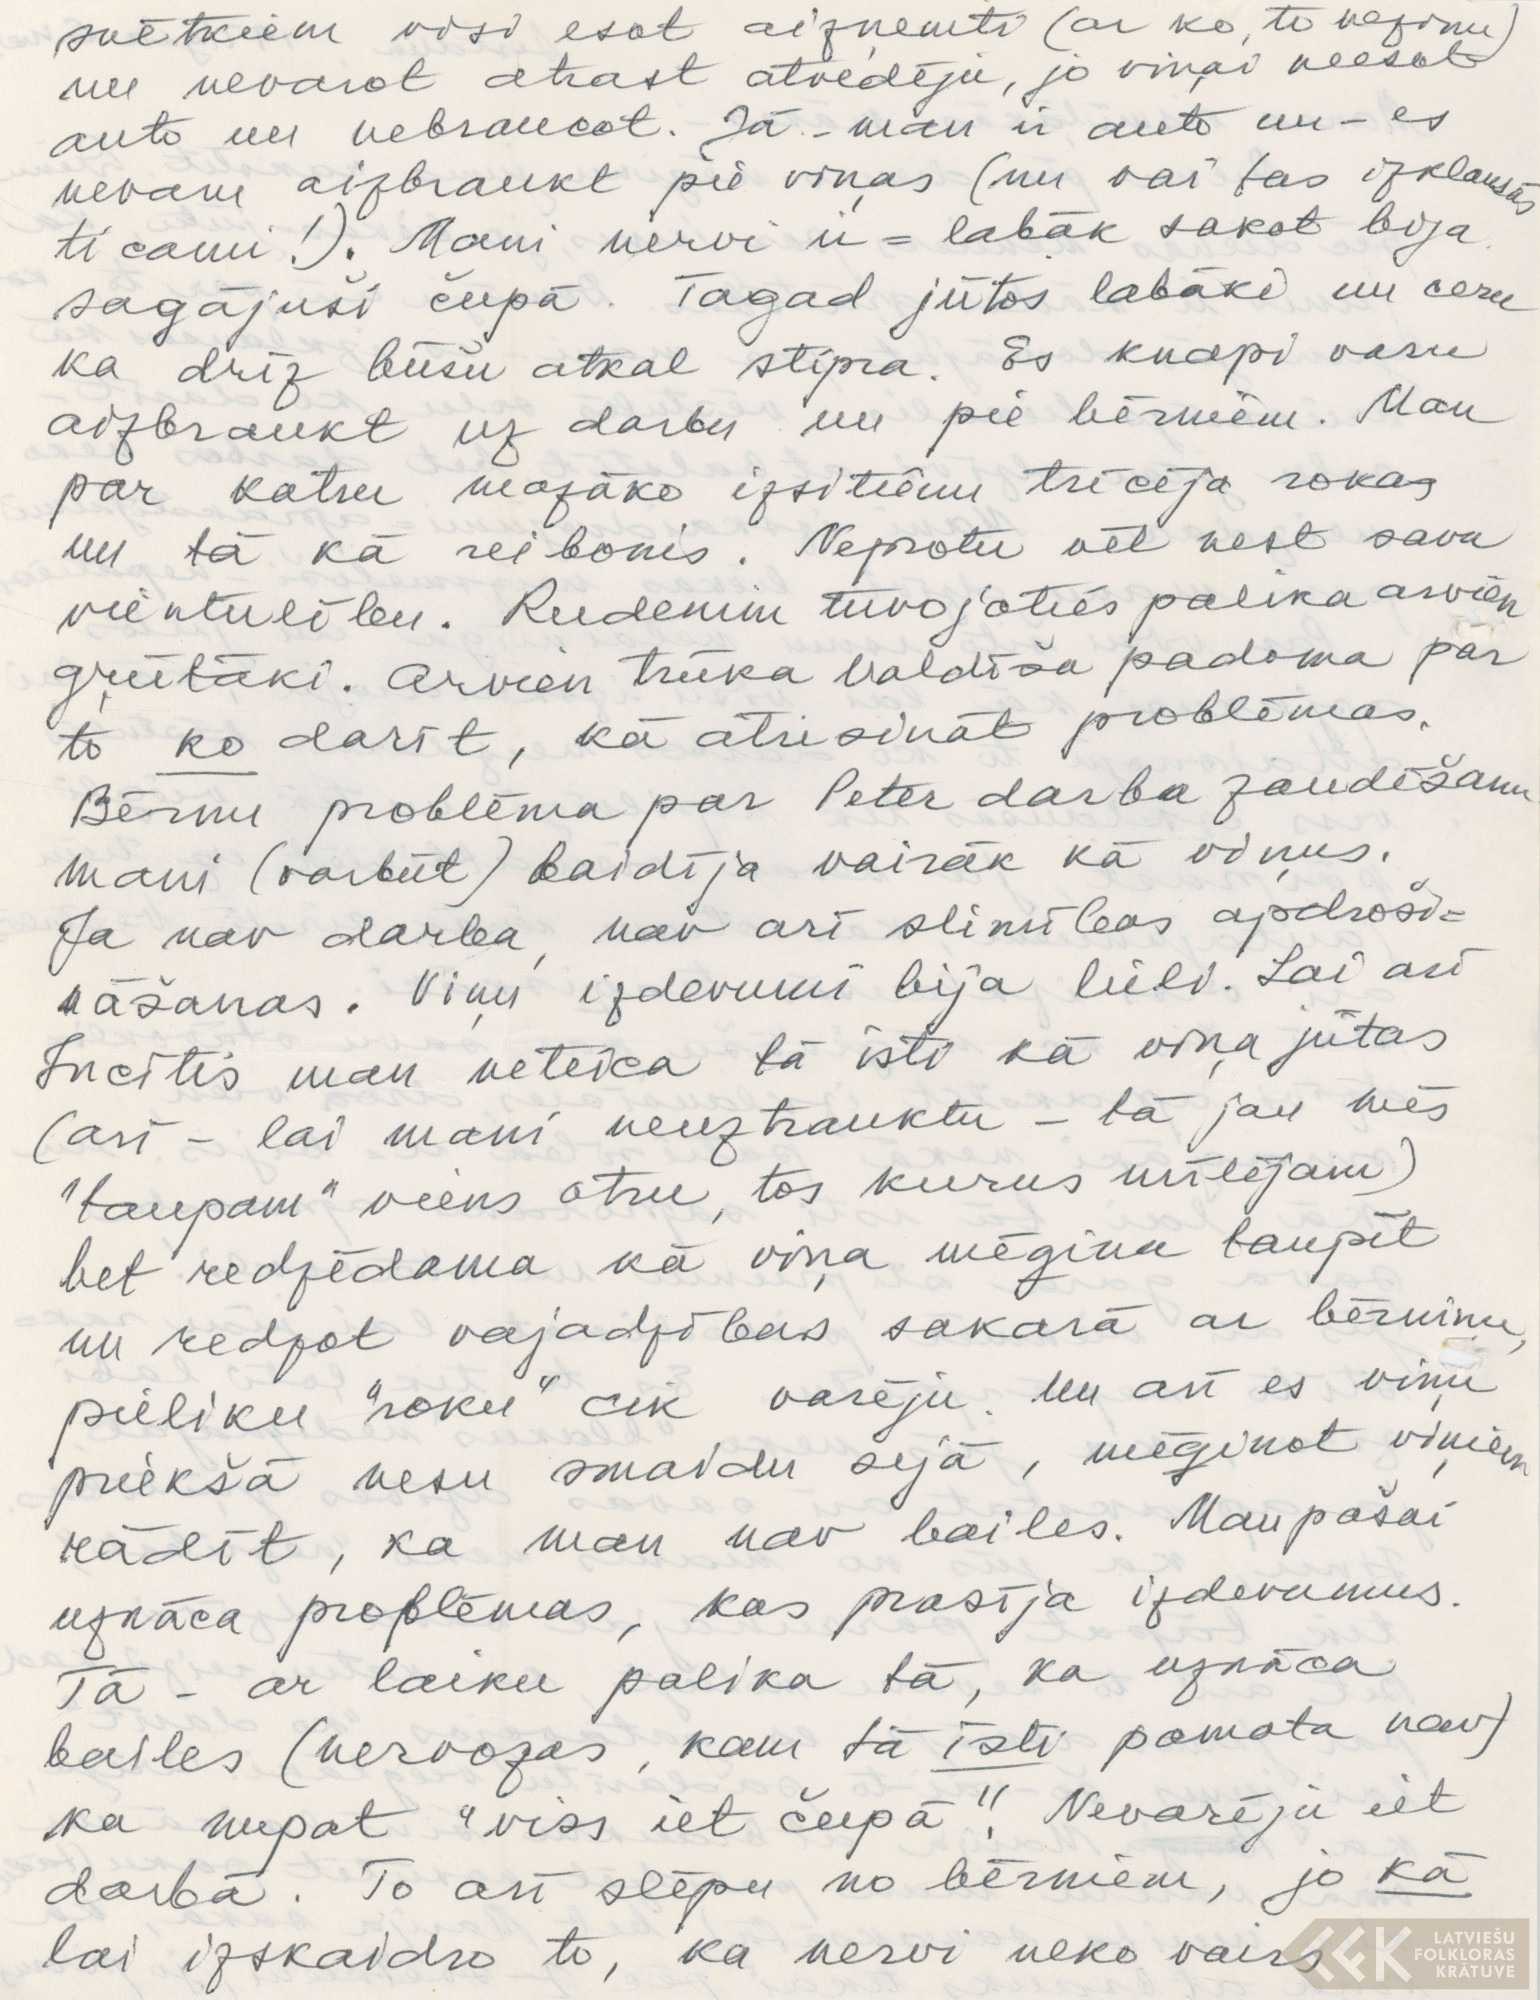 svētkiem visi esot aizņemti (ar ko, to nezinu)
un nevarot atrast atvedēju, jo viņai neesot
auto un nebraucot. Jā - man ir auto un - es
nevaru aizbraukt pie viņas (nu vai tas izklausās
ticami!). Mani nervi ir = labāk sakot bija
sagājuši čupā. Tagad jūtos labāki un ceru
ka drīz būšu atkal stipra. Es knapi varu
aizbraukt uz darbu un pie bērniem. Man
par katru mazāko izsitienu trīcēja rokas
un tā kā reibonis. Neprotu vēl nest savu
vientulību. Rudenim tuvojoties palika arvien
grūtāki. Arvien trūka Valdiša padoma par
to ko darīt, kā atrisināt problēmas.
Bērnu problēma par Peter darba zaudēšanu
mani (varbūt) baidīja vairāk kā viņus.
Ja nav darba, nav arī slimības apdroši=
nāšanas. Viņu izdevumi bija lieli. Lai arī
Incītis man neteica tā īsti kā viņa jūtas
(arī - lai mani neuztrauktu - tā jau mēs
"taupam" viens otru, tos kurus mīlējam)
bet redzēdama kā viņa mēģina taupīt
un redzot vajadzības sakarā ar bērniņu,
pieliku "roku" cik varēju. Un arī es viņu
priekšā nesu smaidu sejā, mēģinot viņiem
rādīt, ka man nav bailes. Man pašai
uznāca problēmas, kas prasīja izdevumus.
Tā - ar laiku palika tā, ka uznāca
bailes (nervozas, kam tā īsti pamata nav)
ka nupat "viss iet čupā"! Nevarēju iet
darbā. To arī slēpu no bērniem, jo kā
lai izskaidro to, ka nervi neko vairs
LATVIEŠU
FOLKLORAS
KRĀTUVE